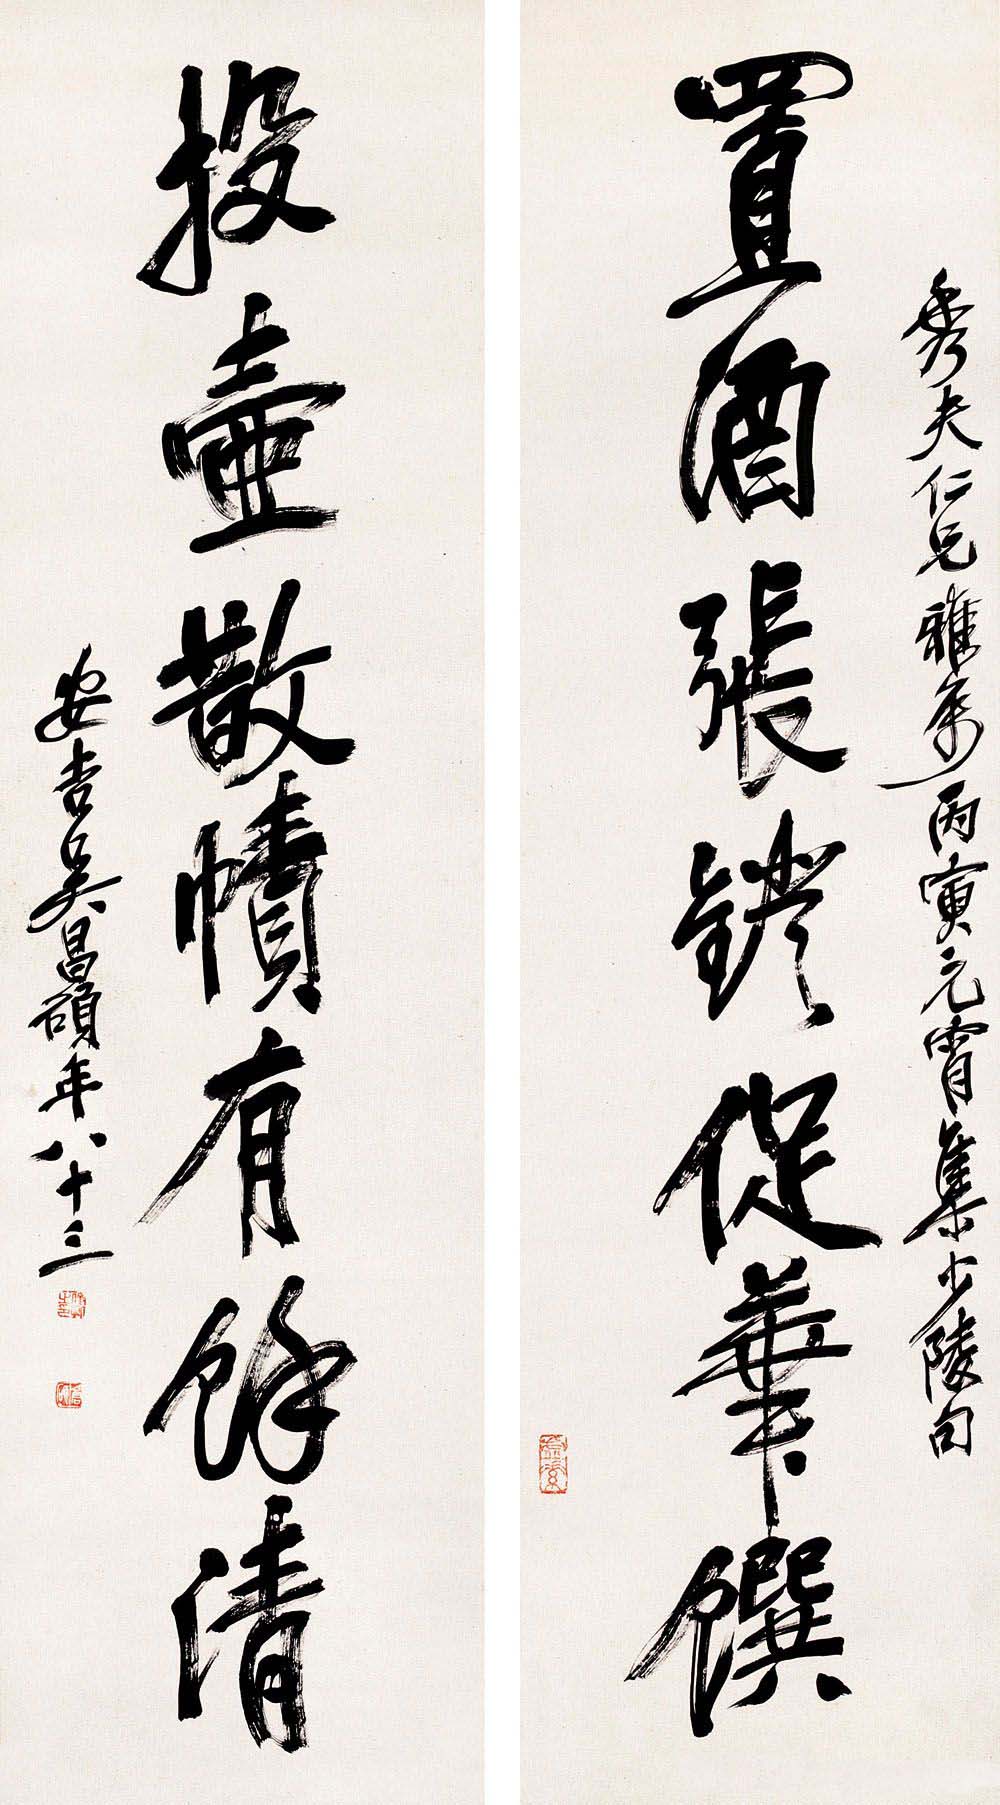 秀夫仁兄雅属丙寅元宵集少陵句
置酒張鐙促華饌
投壺散帙有餘清
安吉吴昌碩年八十三